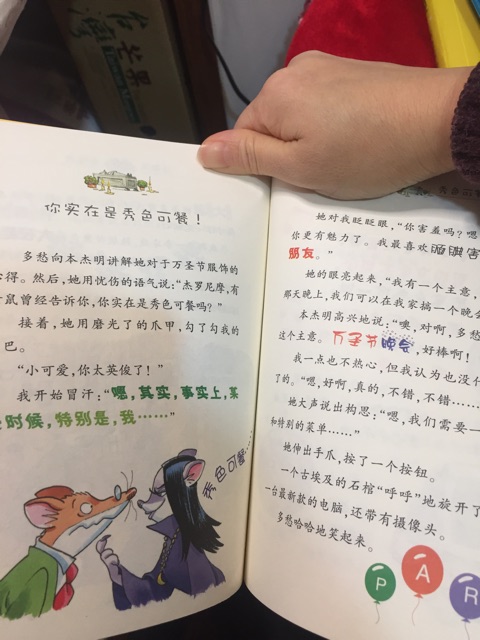 台湾芒果
你实在是秀色可餐！
多愁向本杰明讲解她对于万圣节服饰的
心得。然后，她用忧伤的语气说："杰罗尼摩，有
鼠曾经告诉你，你实在是秀色可餐吗？"
接着，她用磨光了的爪甲，勾了勾我的
巴。
"小可爱，你太英俊了！"
我开始冒汗："嗯，其实，事实上，某
时候，特别是，我……"
秀色可餐…
她对我眨眨眼，"你害羞吗？嗯
你更有魅力了。我最喜欢
朋友。"
她的眼亮起来，"我有一个主意，
那天晚上，我们可以在我家搞一个晚会
本杰明高兴地说："噢，对啊，多愁
这个主意。万圣节晚会，好棒啊！
我一点也不热心，但我认为也没什
了的。"嗯，好啊，真的，不错，不错……
她大声说出构思："嗯，我们需要一
和特别的菜单……"
她伸出手爪，按了一个按钮。
一个古埃及的石棺"呼呼"地旋开了
一台最新款的电脑，还带有摄像头。
多愁哈哈地笑起来。
P A R